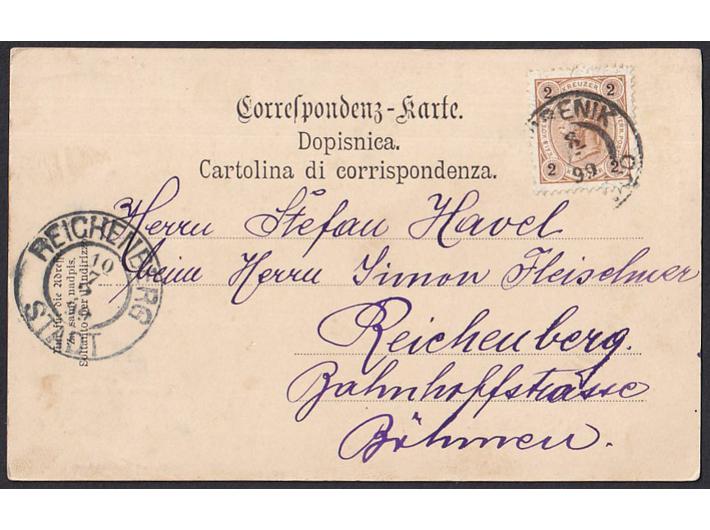 Correspondenz-Karte.
Dopisnica.
Cartolina di corrispondenza.
2 KREUZER 2
2 2
99
Herrn Stefan Havel
beim Herrn Simon Fleischmer
Reichenberg.
Bahnhoffstrasse
Böhmen.
REICHENBERG
STADT
10
Nur für die Adresse
Za samo nadpis.
Soltanto per l'indirizzo